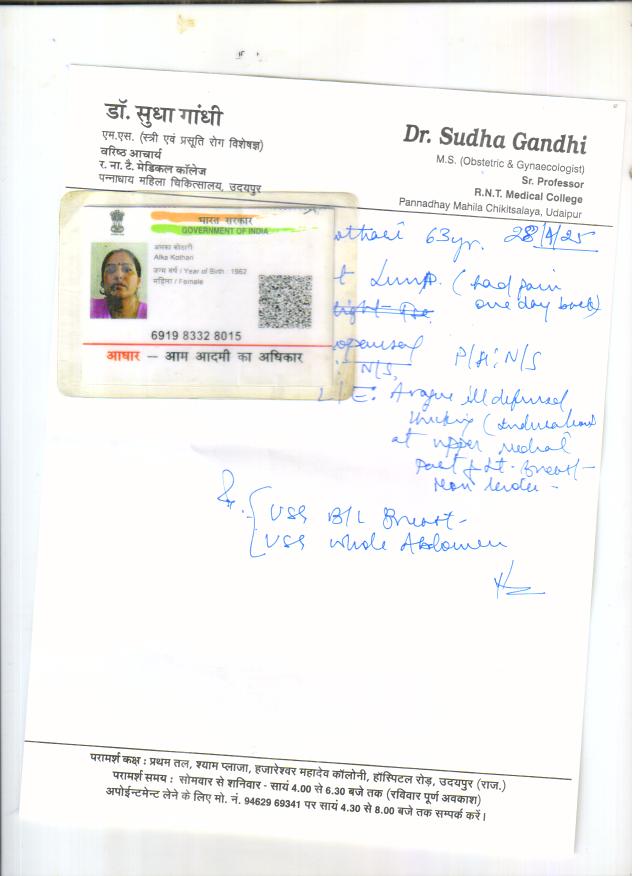 डॉ. सुधा गांधी
एम.एस. (स्त्री एवं प्रसूति रोग विशेषज्ञ)
वरिष्ठ आचार्य
र. ना. टै. मेडिकल कॉलेज
पन्नाधाय महिला चिकित्सालय, उदयपुर
Dr. Sudha Gandhi
M.S. (Obstetric & Gynaecologist)
Sr. Professor
R.N.T. Medical College
Pannadhay Mahila Chikitsalaya, Udaipur
भारत सरकार
GOVERNMENT OF INDIA
अलका कोठारी
Alka Kothari
जन्म वर्ष / Year of Birth : 1962
महिला / Female
6919 8332 8015
आधार – आम आदमी का अधिकार
63yr. 28/4/25
t Lump. (had pain
one day back)
P/H: N/S
N/S,
L/E: A vague ill defined
(Induration)
at upper medial
part of Lt. Breast -
non tender -
Rx. USG B/L Breast -
USG whole Abdomen
परामर्श कक्ष : प्रथम तल, श्याम प्लाजा, हजारेश्वर महादेव कॉलोनी, हॉस्पिटल रोड़, उदयपुर (राज.)
परामर्श समय : सोमवार से शनिवार - सायं 4.00 से 6.30 बजे तक (रविवार पूर्ण अवकाश)
अपोईन्टमेन्ट लेने के लिए मो. नं. 94629 69341 पर सायं 4.30 से 8.00 बजे तक सम्पर्क करें।